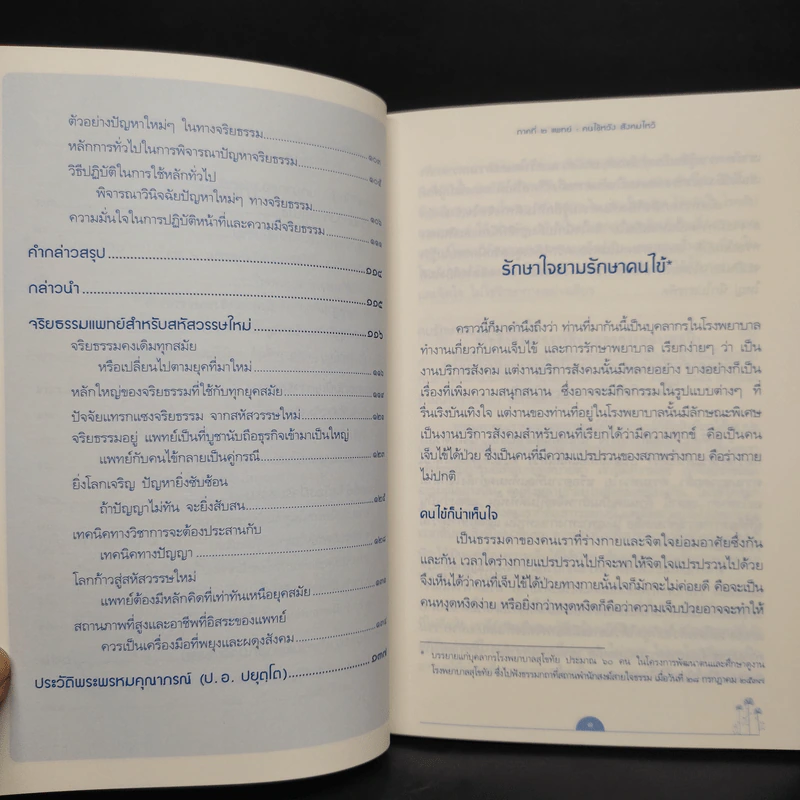 ตัวอย่างปัญหาใหม่ๆ ในทางจริยธรรม ๑๐๓
หลักการทั่วไปในการพิจารณาปัญหาจริยธรรม ๑๐๕
วิธีปฏิบัติในการใช้หลักทั่วไป
พิจารณาวินิจฉัยปัญหาใหม่ๆ ทางจริยธรรม ๑๐๖
ความมั่นใจในการปฏิบัติหน้าที่และความมีจริยธรรม ๑๑๑
คำกล่าวสรุป ๑๑๔
กล่าวนำ ๑๑๕
จริยธรรมแพทย์สำหรับสหัสวรรษใหม่ ๑๑๖
จริยธรรมคงเดิมทุกสมัย
หรือเปลี่ยนไปตามยุคที่มาใหม่ ๑๑๖
หลักใหญ่ของจริยธรรมที่ใช้กับทุกยุคสมัย ๑๑๙
ปัจจัยแทรกแซงจริยธรรม จากสหัสวรรษใหม่ ๑๒๑
จริยธรรมอยู่ แพทย์เป็นที่บูชานับถือธุรกิจเข้ามาเป็นใหญ่
แพทย์กับคนไข้กลายเป็นคู่กรณี ๑๒๓
ยิ่งโลกเจริญ ปัญหายิ่งซับซ้อน
ถ้าปัญญาไม่ทัน จะยิ่งสับสน ๑๒๕
เทคนิคทางวิชาการจะต้องประสานกับ
เทคนิคทางปัญญา ๑๒๘
โลกก้าวสู่สหัสวรรษใหม่
แพทย์ต้องมีหลักคิดที่เท่าทันเหนือยุคสมัย
สถานภาพที่สูงและอาชีพที่อิสระของแพทย์
ควรเป็นเครื่องมือที่พยุงและผดุงสังคม
ประวัติพระพรหมคุณาภรณ์ (ป. อ. ปยุตฺโต) ๑๓๗
ภาคที่ ๒ แพทย์ - คนไข้หวัง สังคมไหว้
รักษาใจยามรักษาคนไข้*
คราวนี้ก็มาคำนึงถึงว่า ท่านที่มากันนี้เป็นบุคลากรในโรงพยาบาล
ทำงานเกี่ยวกับคนเจ็บไข้ และการรักษาพยาบาล เรียกง่ายๆ ว่า เป็น
งานบริการสังคม แต่งานบริการสังคมนั้นมีหลายอย่าง บางอย่างก็เป็น
เรื่องที่เพิ่มความสนุกสนาน ซึ่งอาจจะมีกิจกรรมในรูปแบบต่างๆ ที่
รื่นเริงบันเทิงใจ แต่งานของท่านที่อยู่ในโรงพยาบาลนั้นมีลักษณะพิเศษ
เป็นงานบริการสังคมสำหรับคนที่เรียกได้ว่ามีความทุกข์ คือเป็นคน
เจ็บไข้ได้ป่วย ซึ่งเป็นคนที่มีความแปรปรวนของสภาพร่างกาย คือร่างกาย
ไม่ปกติ
คนไข้ก็น่าเห็นใจ
เป็นธรรมดาของคนเราที่ร่างกายและจิตใจย่อมอาศัยซึ่งกัน
และกัน เวลาใดร่างกายแปรปรวนไปก็จะพาให้จิตใจแปรปรวนไปด้วย
จึงเห็นได้ว่าคนที่เจ็บไข้ได้ป่วยทางกายนั้นใจก็มักจะไม่ค่อยดี คือจะเป็น
คนหงุดหงิดง่าย หรือยิ่งกว่าหงุดหงิดก็คือว่าความเจ็บป่วยอาจจะทำให้
* บรรยายแก่บุคลากรโรงพยาบาลสุโขทัย ประมาณ ๖๐ คน ในโครงการพัฒนาคนและศึกษาดูงาน
โรงพยาบาลสุโขทัย ซึ่งไปฟังธรรมกถาที่สถานพำนักสงฆ์สายใจธรรม เมื่อวันที่ ๒๘ กรกฎาคม ๒๕๓๗
๑